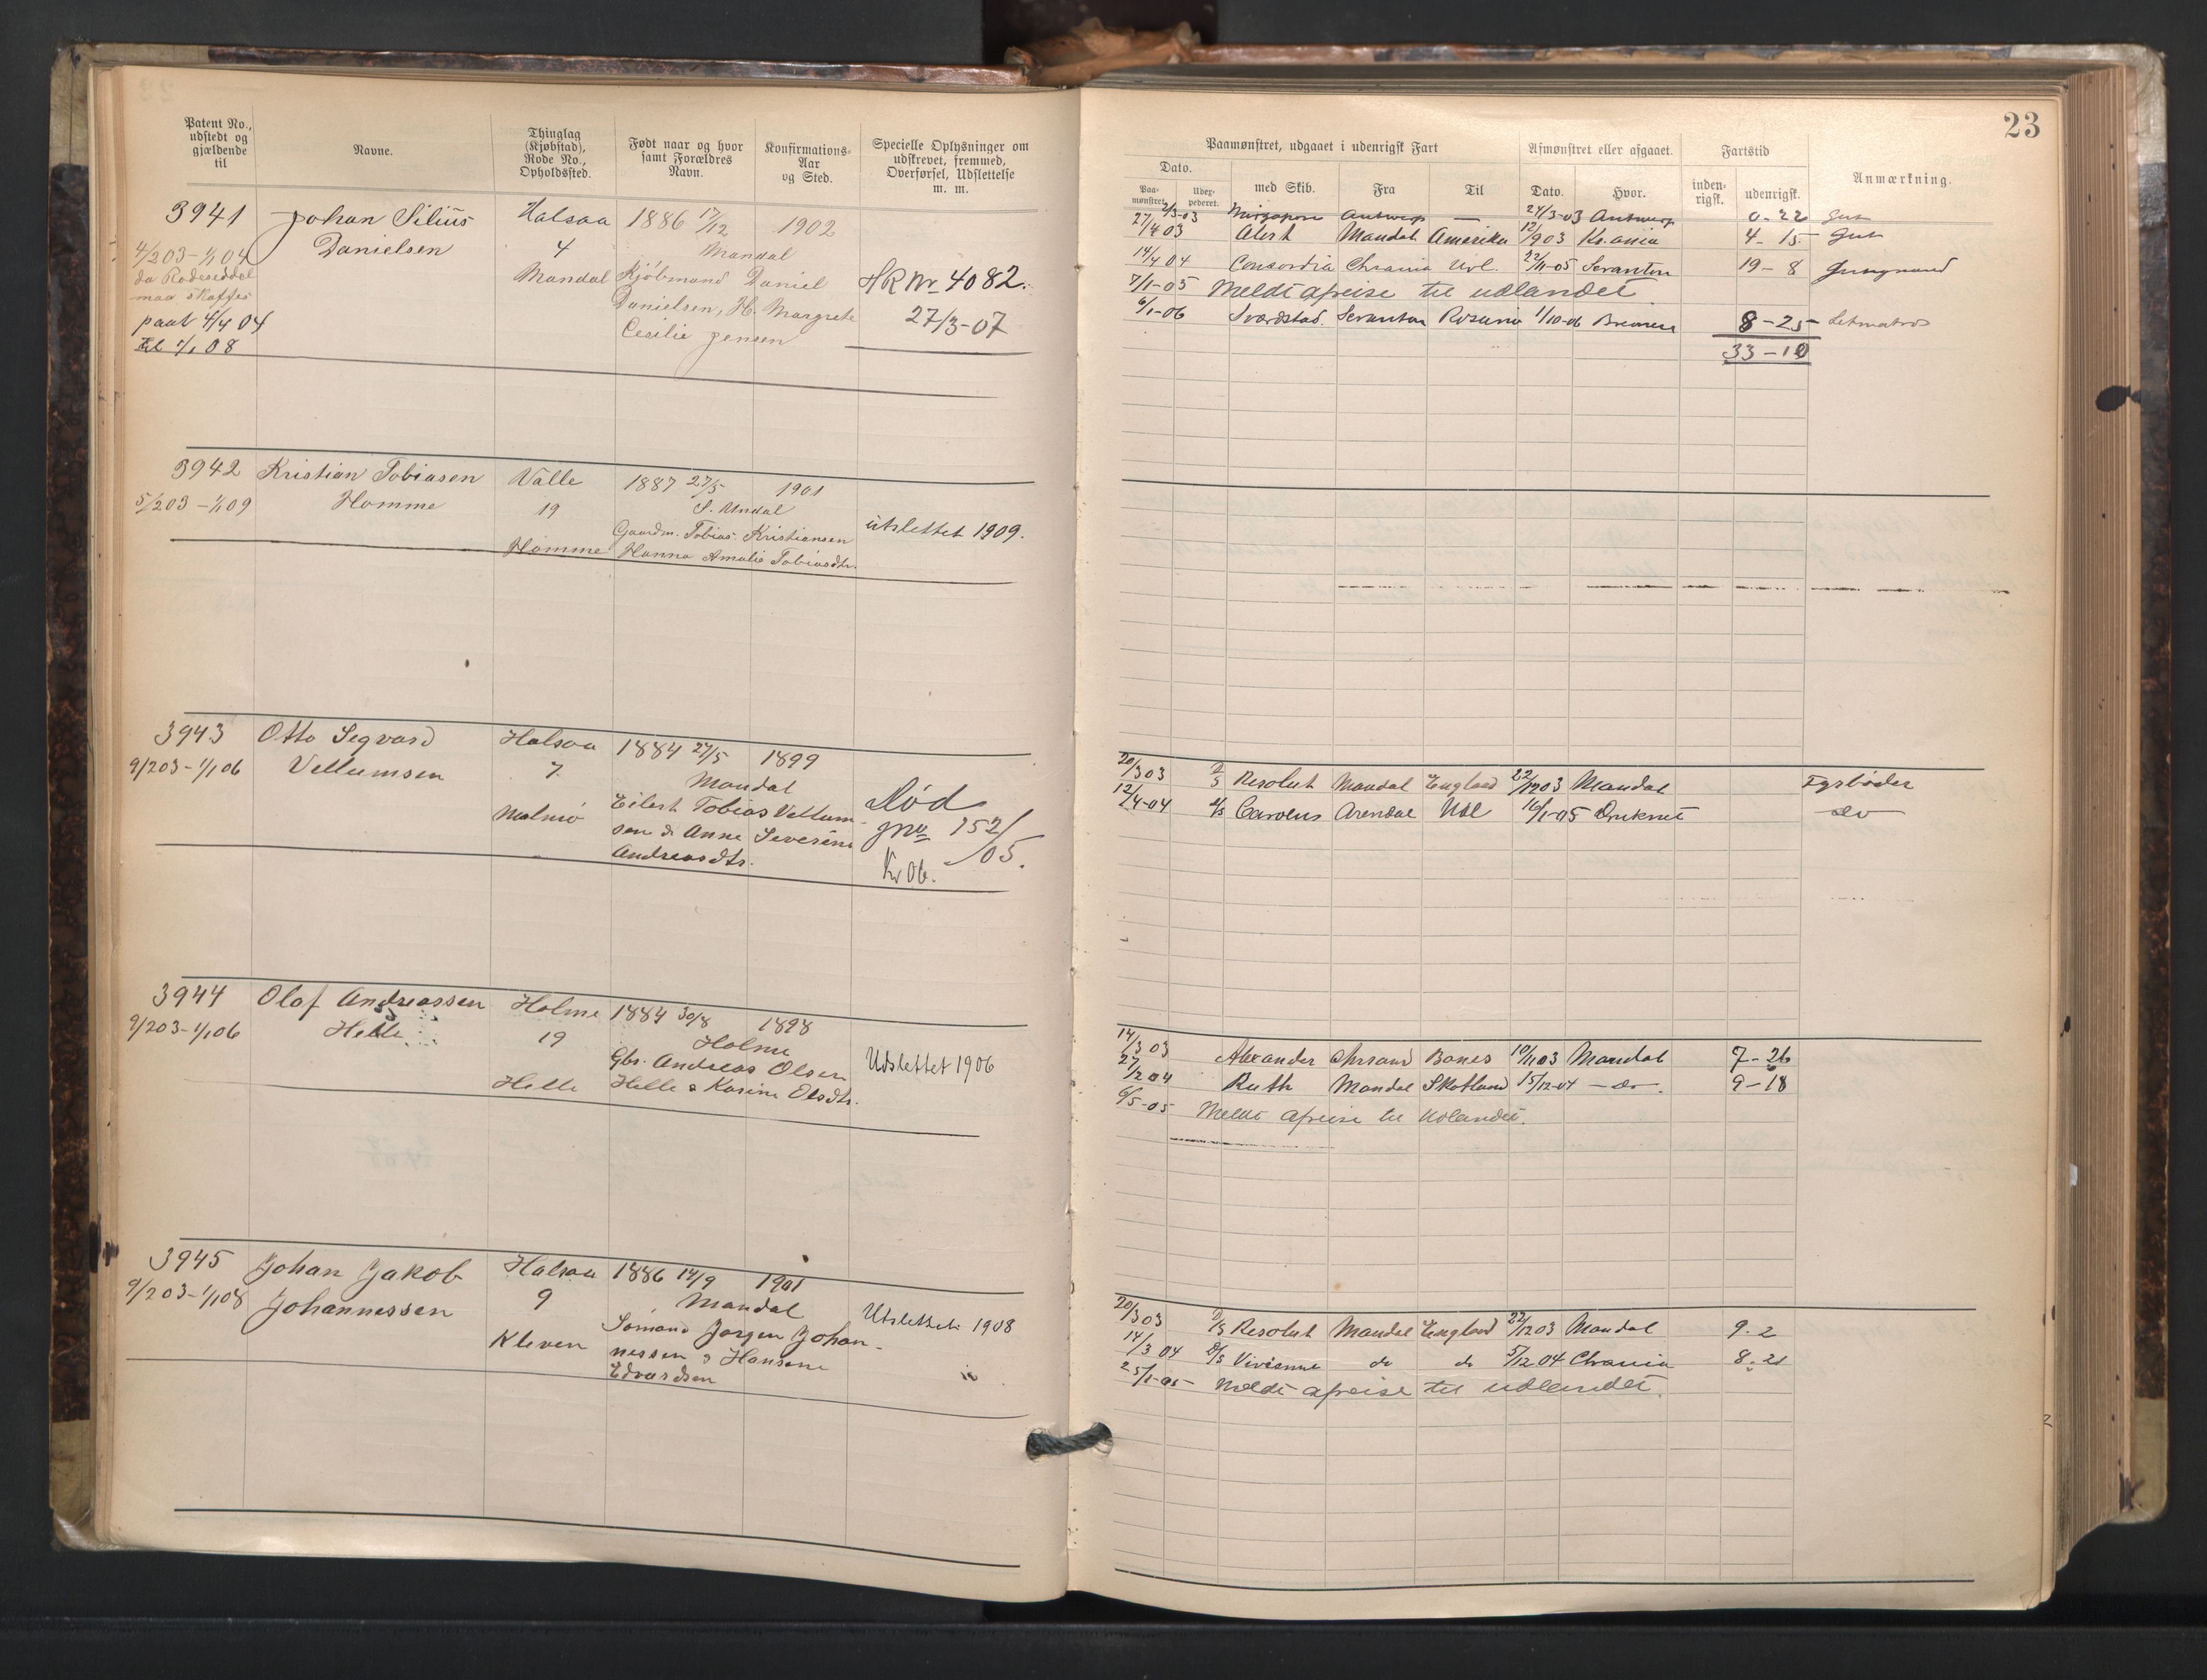 23
Patent No., udstedt og gjældende til
Navne.
Thinglag (Kjøbstad), Rode No., Opholdssted.
Født naar og hvor samt Forældres Navn.
Konfirmations-Aar og Sted.
Specielle Oplysninger om udskrevet, fremmed, Overførsel, Udslettelse m. m.
Paamønstret, udgaaet i udenrigsk Fart
Afmønstret eller afgaaet.
Fartstid
Anmærkning.
Dato.
Paa-mønstret.
med Skib.
Fra
Til
Dato.
Hvor.
inden-rigsk.
udenrigsk.
3941 Johan Silius Halsaa 1886 17/12 1902
4/2 03 - 1/1 04 Danielsen 4 Mandal
da Rodeseddel Mandal Kjøbmand Daniel HR Nr 4082.
maa skaffes Danielsen, H. Margrete 27/3-07
paat 4/4 04 Cecilie Jensen
til 1/1 08
2/3-03 Antwerp — 24/3-03 Antwerp 0-22 Gut
27/4 03 Alert Mandal Amerika 12/9 03 Kr.ania 4-15 Gut
14/4 04 Concordia Chrania Udl. 22/11-05 Scranton 19-8 Jungmand
7/1-05 Meldt afreise til udlandet.
6/1-06 Sværdstad Scranton Rosario 1/10-06 Bremen 8-25 Letmatros
33-10
3942 Kristian Tobiasen Valle 1887 27/5 1901
5/2 03 - 1/1 09 Homme 19 S. Undal
Gaardm. Tobias Kristiansen utslettet 1909.
Homme Hanna Amalie Tobiasdtr.
3943 Otto Segvard Halsaa 1884 27/5 1899
9/2 03 - 1/1 06 Vellumsen 7 Mandal
Malmö Eilert Tobias Vellum- død
sen & Anne Severine JNo 152/05.
Andreasdtr. Kv 06.
20/3 03 D/S Resolut Mandal England 22/12 03 Mandal Fyrbøder
12/4-04 D/S Carolus Arendal Udl 16/1-05 Druknet do
3944 Olaf Andreassen Holme 1884 30/8 1898
9/2 03 - 1/1 06 Helle 19 Holme
Gbr. Andreas Olsen Udslettet 1906
Helle Helle & Karine Olsdtr.
14/3 03 Alexander Chrsand Banes 10/11 03 Mandal 7-26
27/2 04 Ruth Mandal Skotland 15/12-04 —do—. 9-18
6/5-05 Meldt afreise til Udlandet.
3945 Johan Jakob Halsaa 1886 14/9 1901
9/2 03 - 1/1 08 Johannessen 9 Mandal
Kleven Sømand Jørgen Johan- Utslettet 1908
nessen & Hansine
Edvardsen
20/3 03 D/S Resolut Mandal England 22/12 03 Mandal 9-2
14/3 04 D/S Vivienne do do 5/12 04 Chrania 8-21
25/1-05 Meldt afreise til udlandet.